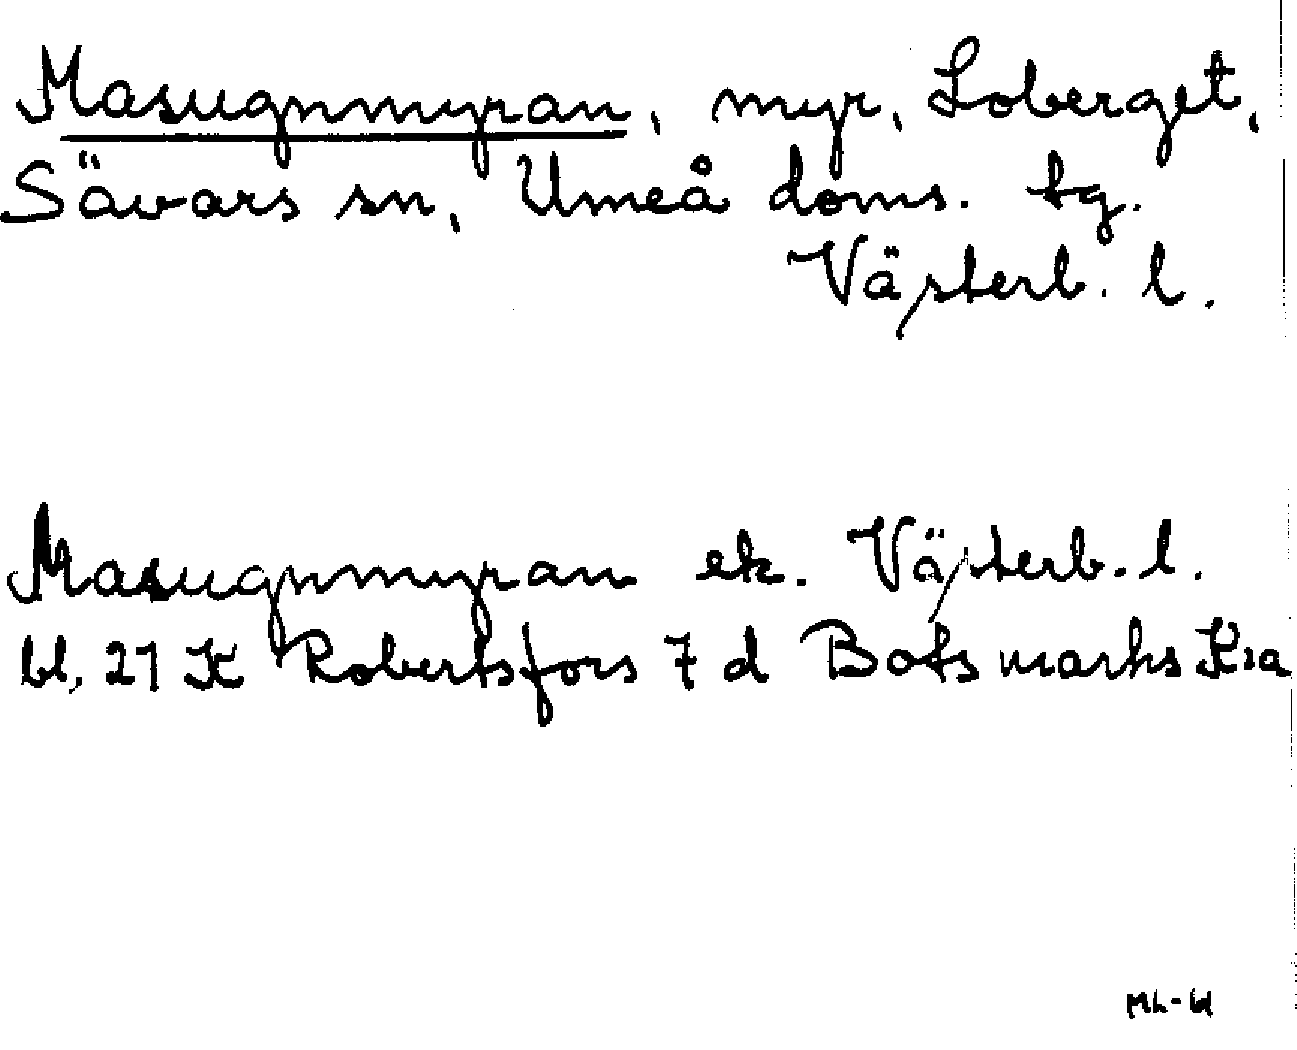 Masugnmyran, myr, Loberget,
Sävars sn, Umeå doms. tg.
Västerb. l.
Masugnmyran ek. Västerb. l.
bl. 21 K Robertsfors 7 d Botsmarks Kra